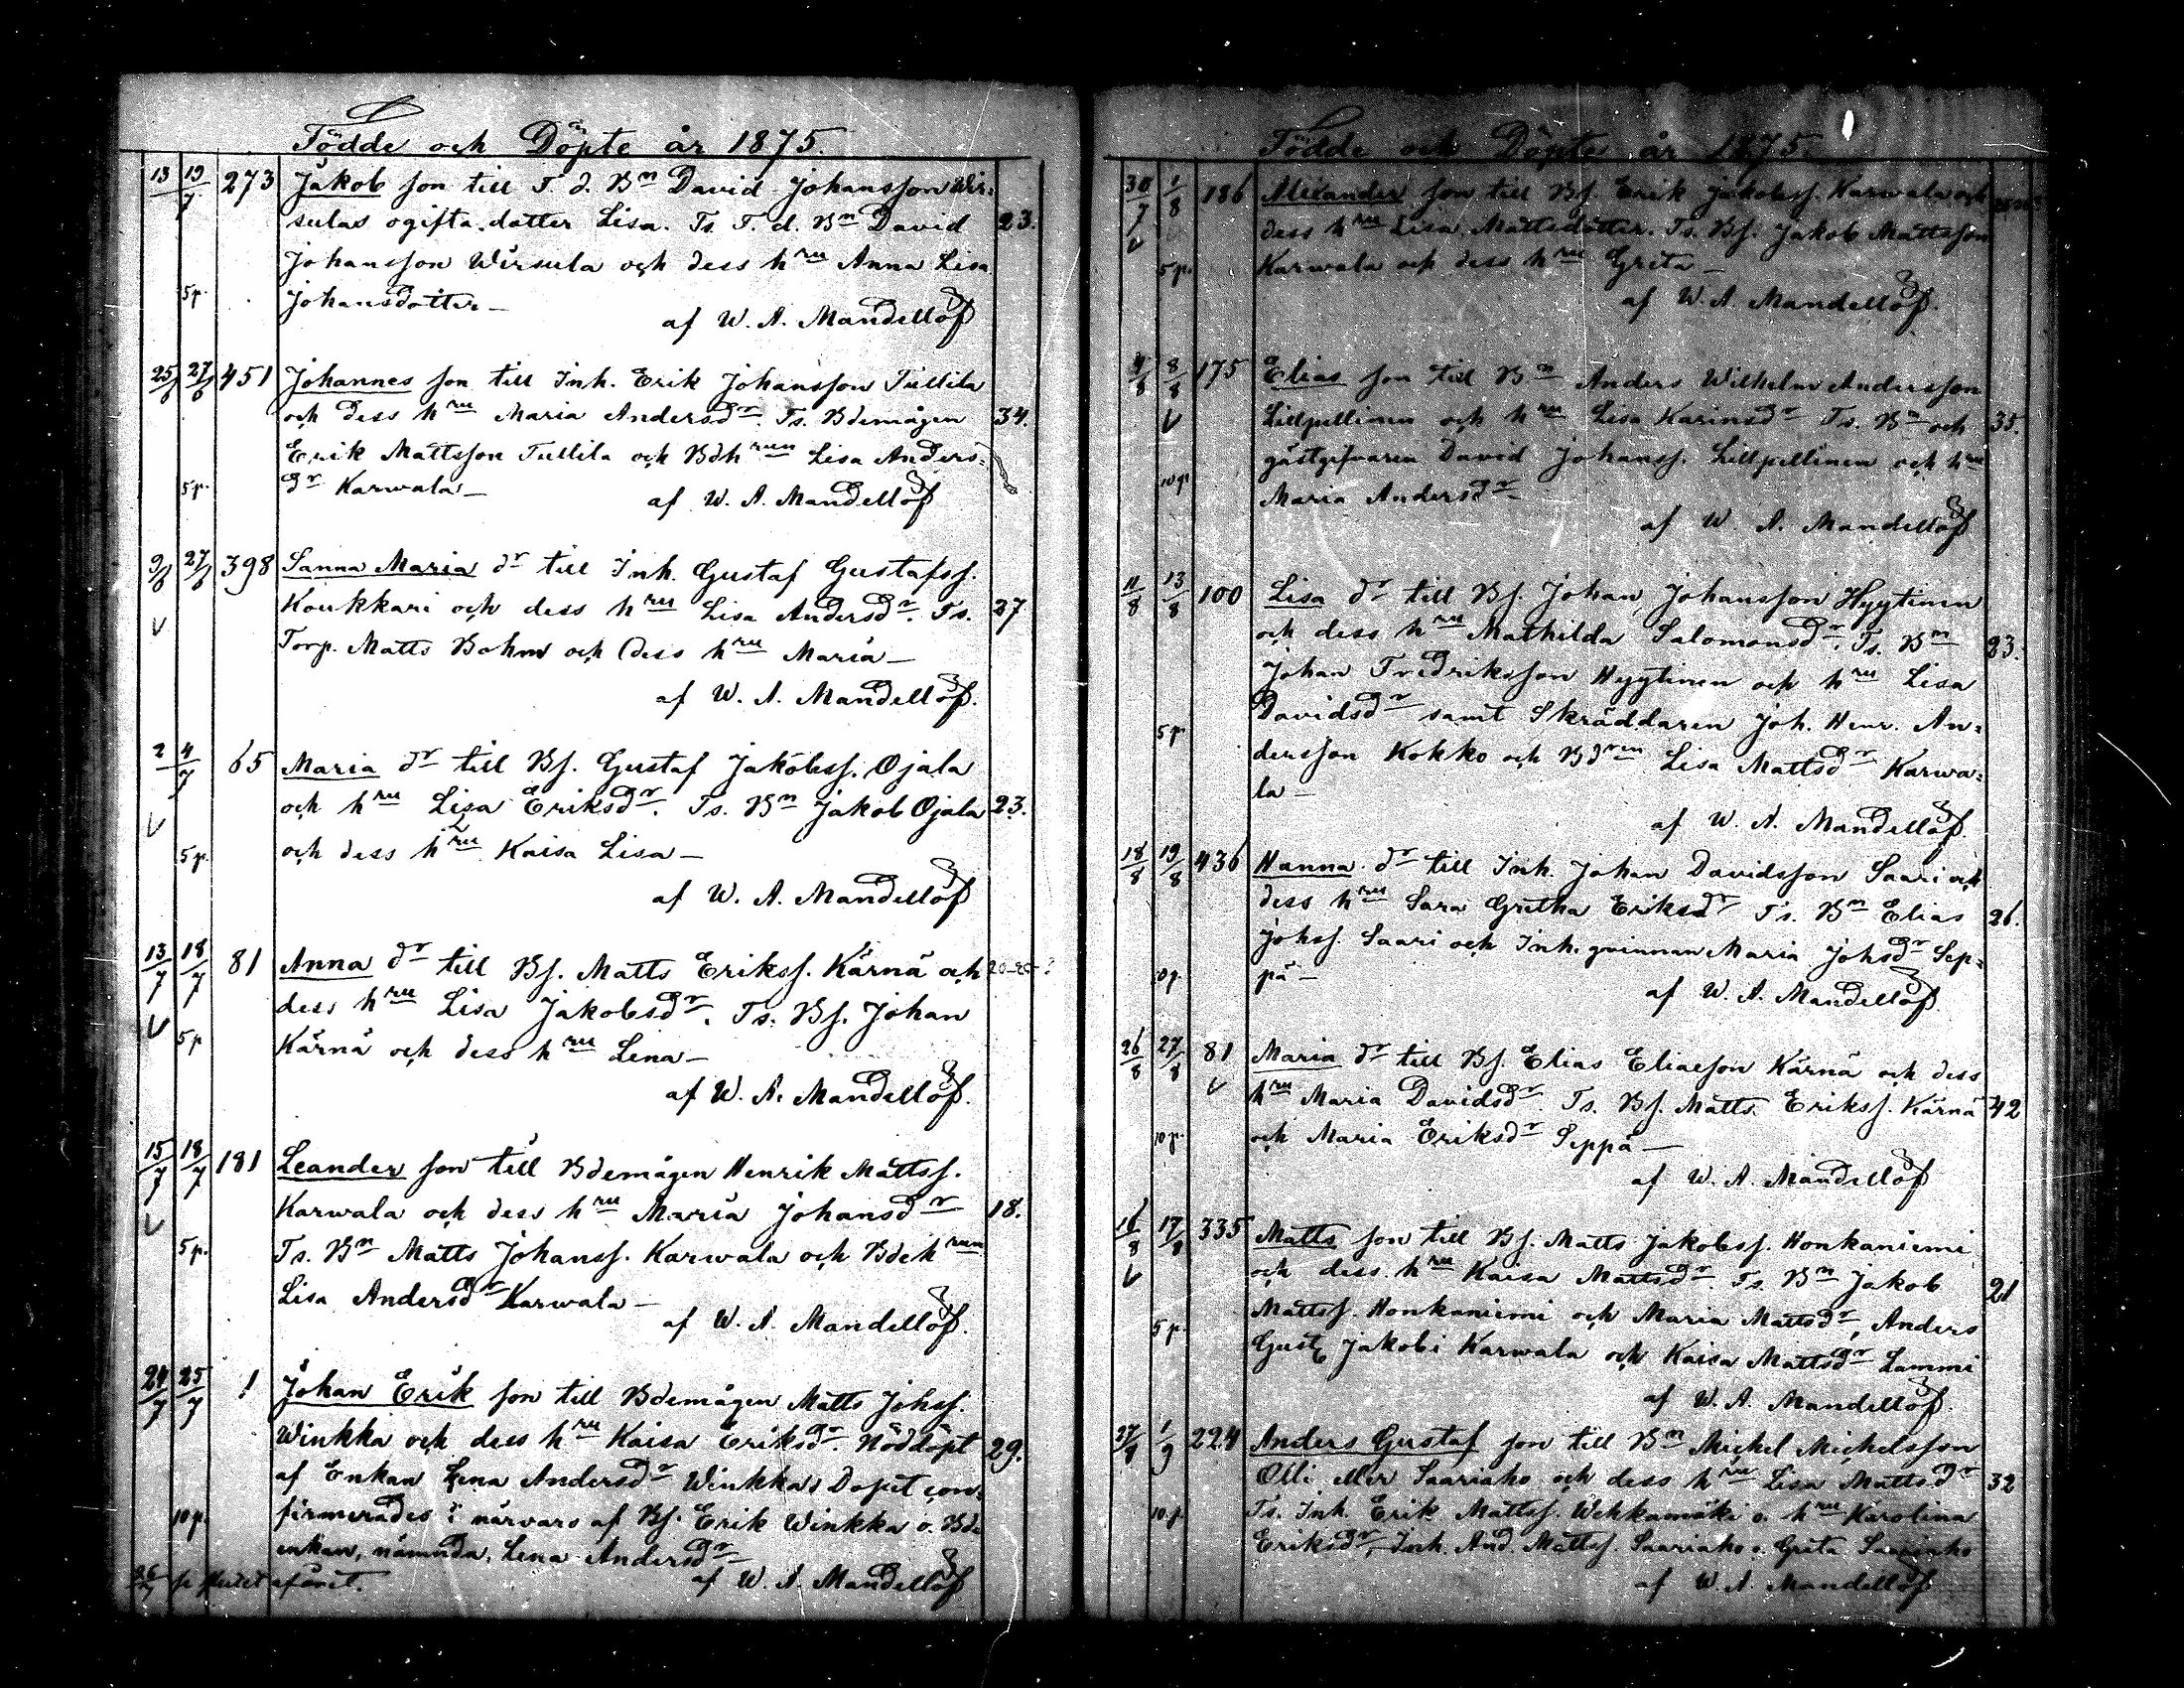 Födde och Döpte år 1875.
13 19/7 273 Jakob son till T. d. Bm David Johansson Wir=
sulas ogifta dotter Lisa. Ts. T. d. Bm David 23.
Johansson Wirsula och dess hru Anna Lisa
5p. Johansdotter—
af W. A. Mandellöf
25/6 27/6 451 Johannes son till Inh. Erik Johansson Tullila
och dess hru Maria Andersdr. Ts. Bdemågen 34.
Erik Mattsson Tullila och Bdhrun Lisa Anders=
5p. dr Karwala—
af W. A. Mandellöf
9/6 27/6 398 Sanna Maria dr till Inh. Gustaf Gustafss.
Koukkari och dess hru Lisa Andersdr. Ts. 27
Torp. Matts Bohm och dess hru Maria—
af W. A. Mandellöf.
2 4/7 65 Maria dr till Bs. Gustaf Jakobss. Ojala
och hru Lisa Eriksdr. Ts. Bm Jakob Ojala 23.
5p. och dess hru Kaisa Lisa—
af W. A. Mandellöf
13/7 18/7 81 Anna dr till Bs. Matts Erikss. Kärnä och 20-25?
dess hru Lisa Jakobsdr. Ts. Bs. Johan
5p Kärnä och dess hru Lena—
af W. A. Mandellöf.
15/7 18/7 181 Leander son till Bdemågen Henrik Mattss.
Karwala och dess hru Maria Johansdr 18.
5p. Ts. Bm Matts Johanss. Karwala och Bdehrun
Lisa Andersdr Karwala—
af W. A. Mandellöf.
24/7 25/7 1 Johan Erik son till Bdemågen Matts Johss.
Winkka och dess hru Kaisa Eriksdr. Nöddöpt 29.
af Enkan Lena Andersdr Winkka. Dopet con=
10p. firmerades i närvaro af Bs. Erik Winkka o. Bde
enkan, nämnda, Lena Andersdr—
af W. A. Mandellöf
Födde och Döpte år 1875.
30/7 1/8 186 Alexander son till Bs. Erik Jakobss. Karwala och
dess hru Lisa Mattsdotter. Ts. Bs. Jakob Mattsson
5p. Karwala och dess hru Greta—
af W. A. Mandellöf.
4/8 8/8 175 Elias son till Bm Anders Wilhelm Andersson
Lillpellinen och hru Lisa Karinsdr Ts. Bm och 35.
gästgifvaren David Johanss. Lillpellinen och hru
10p Maria Andersdr—
af W. A. Mandellöf
11/8 13/8 100 Lisa dr till Bs. Johan Johansson Hyytinen
och dess hru Mathilda Salomonsdr. Ts. Bm 23.
Johan Fredriksson Hyytinen och hru Lisa
5p. Davidsdr samt Skräddaren Joh. Henr. An=
dersson Kokko och Bdrun Lisa Mattsdr Karwa=
la—
af W. A. Mandellöf.
18/8 19/8 436 Hanna dr till Inh. Johan Davidsson Saari och
dess hru Sara Gretha Eriksdr Ts. Bm Elias 26.
Johss. Saari och Inh. qvinnan Maria Johsdr Sep=
10p. pä—
af W. A. Mandellöf.
26/8 27/8 81 Maria dr till Bs. Elias Eliasson Kärnä och dess
hru Maria Davidsdr. Ts. Bs. Matts Erikss. Kärnä 42
10p. och Maria Eriksdr Seppä—
af W. A. Mandellöf
16/8 17/8 335 Matts son till Bs. Matts Jakobss. Honkaniemi
och dess hru Kaisa Mattsdr. Ts. Bm Jakob 21
5p. Mattss. Honkaniemi och Maria Mattsdr, Anders
Gust. Jakobi Karwala och Kaisa Mattsdr Lammi
af W. A. Mandellöf.
27/8 1/9 224 Anders Gustaf son till Bm Michel Michelsson
Olli eller Saariaho och dess hru Lisa Mattsdr 32
10p. Ts. Inh. Erik Mattss. Wehkamäki o. hru Karolina
Eriksdr, Inh. And. Mattss. Saariaho o. Greta Saariaho
af W. A. Mandellöf